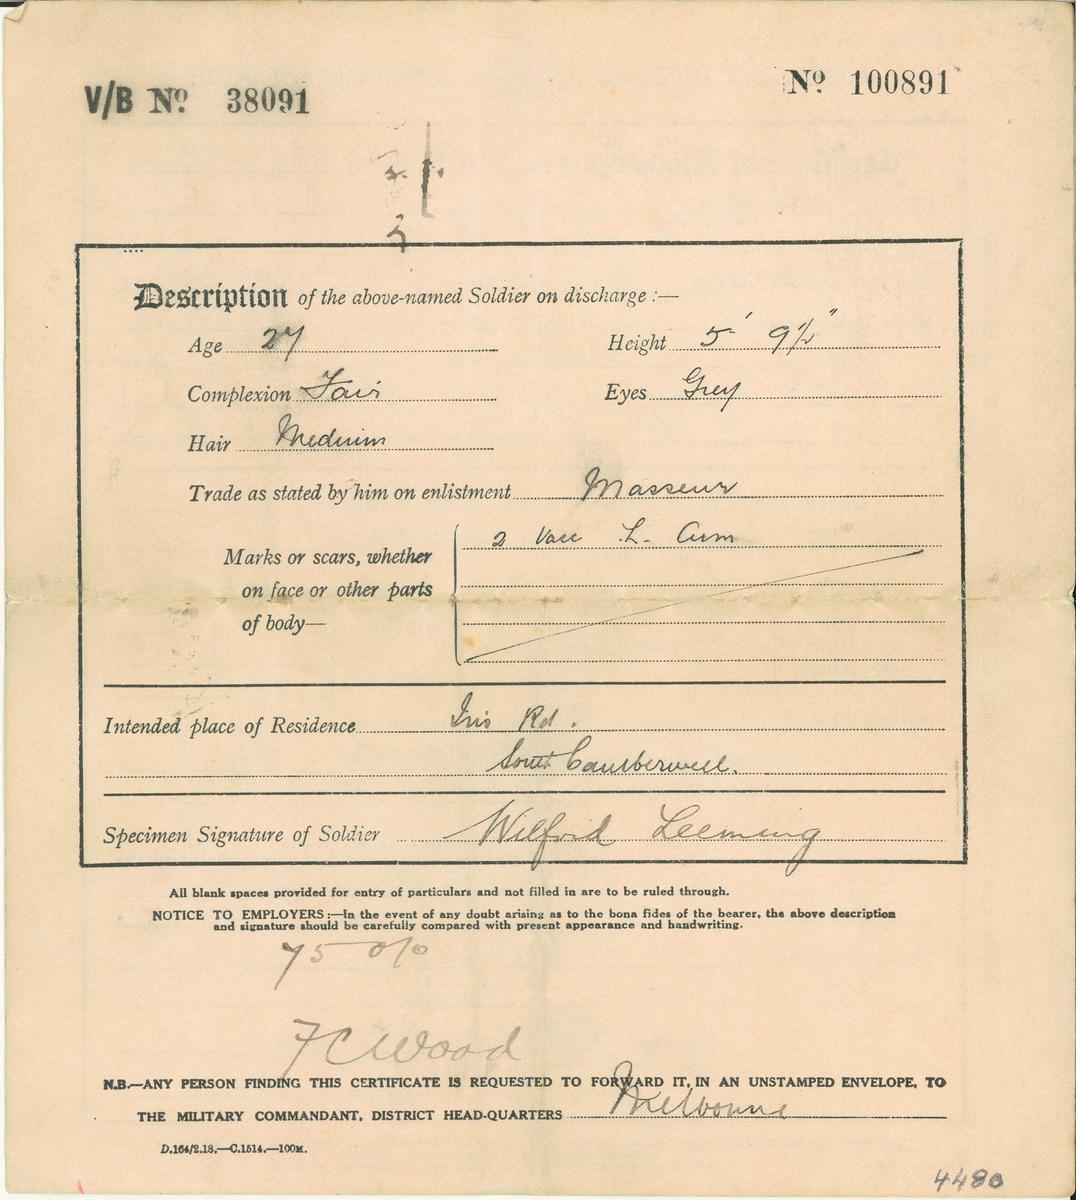 V/B No 38091
No 100891
Description of the above-named Soldier on discharge :—
Age 27 Height 5' 9½"
Complexion Fair Eyes Grey
Hair Medium
Trade as stated by him on enlistment Masseur
Marks or scars, whether 2 Vacc L. Arm
on face or other parts
of body—
Intended place of Residence Iris Rd.
South Camberwell.
Specimen Signature of Soldier Wilfrid Leeming
All blank spaces provided for entry of particulars and not filled in are to be ruled through.
NOTICE TO EMPLOYERS :—In the event of any doubt arising as to the bona fides of the bearer, the above description
and signature should be carefully compared with present appearance and handwriting.
75 o/o
FC Wood
N.B.—ANY PERSON FINDING THIS CERTIFICATE IS REQUESTED TO FORWARD IT, IN AN UNSTAMPED ENVELOPE, TO
THE MILITARY COMMANDANT, DISTRICT HEAD-QUARTERS Melbourne
D.164/2.18.—C.1514.—100M.
4480